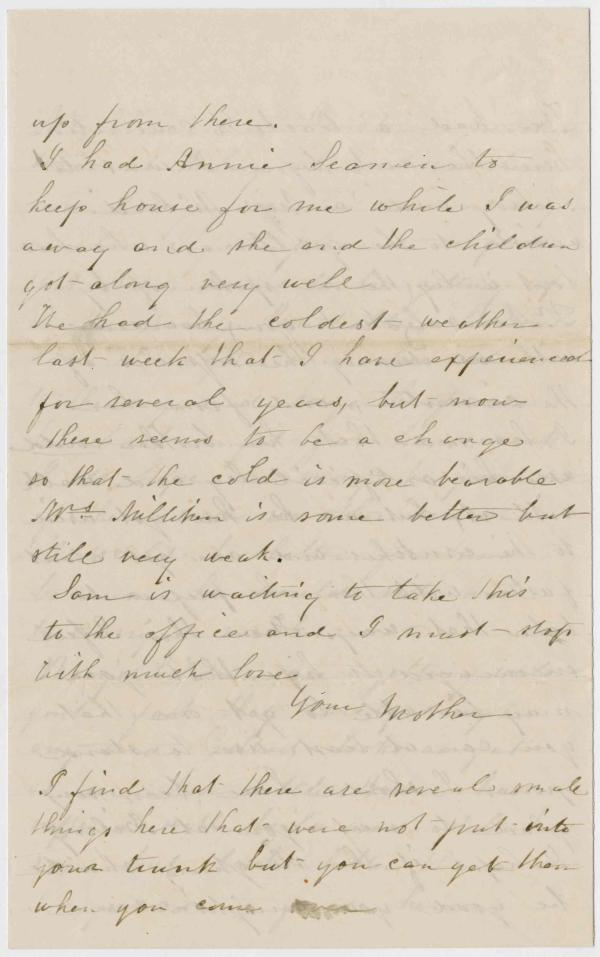 up from there.
I had Annie Seamen to
keep house for me while I was
away and she and the children
got along very well
We had the coldest weather
last week that I have experienced
for several years, but now
there seems to be a change
so that the cold is more bearable
Mrs Milliken is some better but
still very weak.
Sam is waiting to take this
to the office and I must stop
With much love
Your Mother
I find that there are several small
things here that were not put into
your trunk but you can get them
when you come